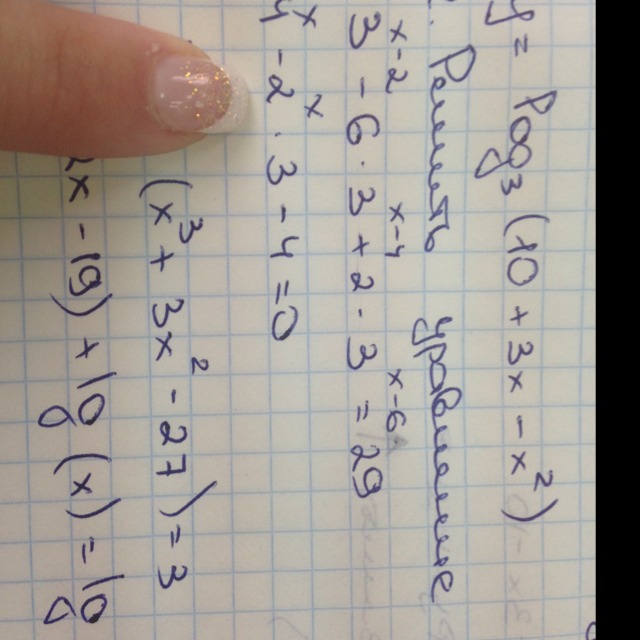 y = log₃(10 + 3x - x²)
Решить уравнение
3ˣ⁻² - 6·3ˣ⁻⁴ + 2·3ˣ⁻⁶ = 29
4ˣ - 2ˣ·3 - 4 = 0
(x³ + 3x² - 27) = 3
x - 19) + lg(x) = lg